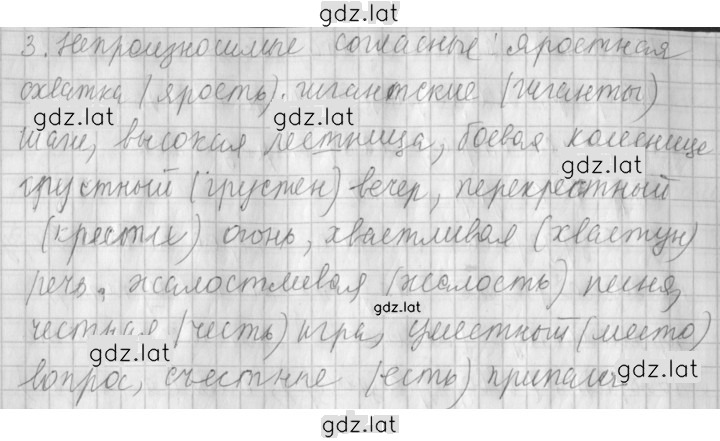 gdz.lat
3. Непроизносимые согласные: яростная
охватка (ярость), гигантские (гиганты)
gdz.lat gdz.lat
шаги, высокая лестница, боевая колесница
gdz.lat
грустный (грустен) вечер, перекрестный
(крестик) огонь, хвастливая (хвастун)
речь, жалостливая (жалость) песня,
gdz.lat
честная (честь) игра, уместный (место)
gdz.lat
вопрос, съестные (есть) припасы
gdz.lat
gdz.lat